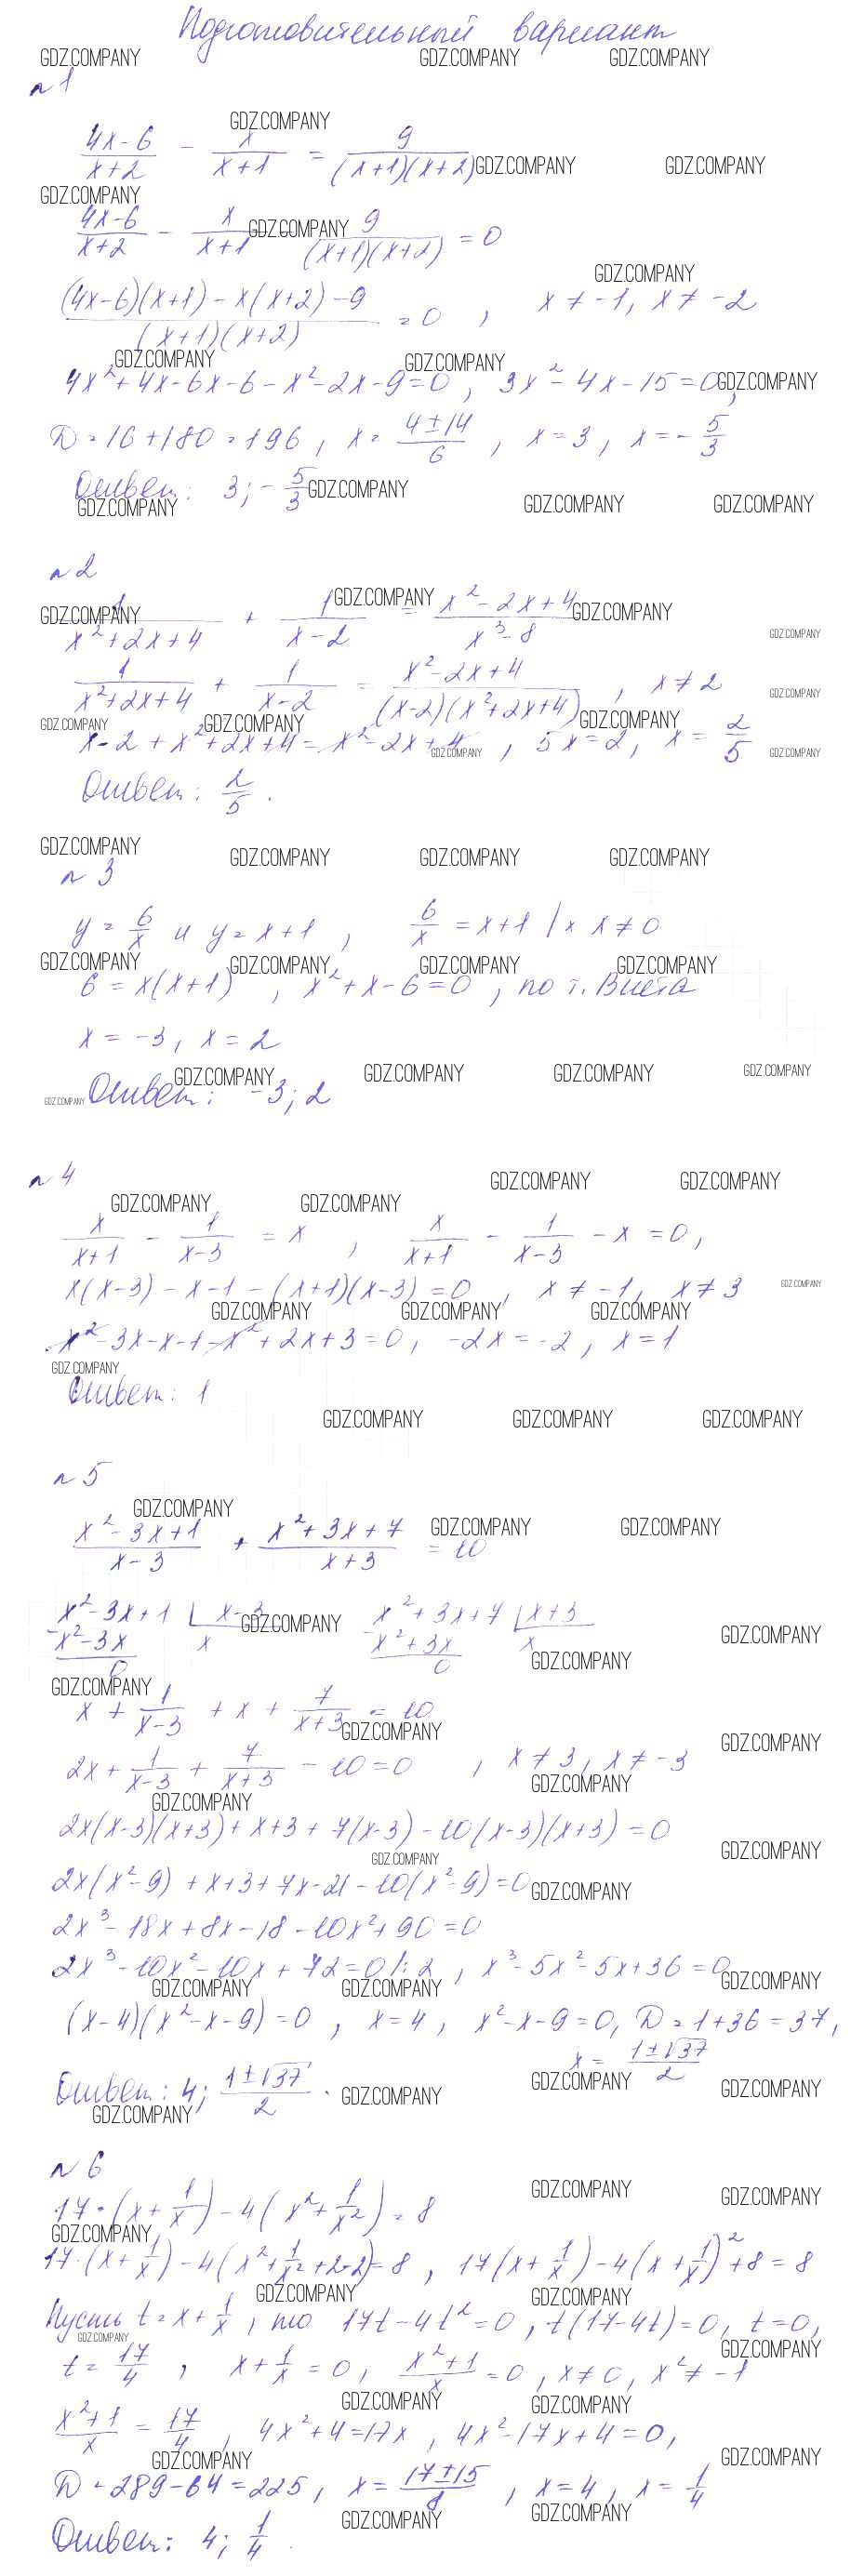 Подготовительный вариант
GDZ.COMPANY GDZ.COMPANY GDZ.COMPANY
n 1
GDZ.COMPANY
(4x-6)/(x+2) - x/(x+1) = 9/((x+1)(x+2))
GDZ.COMPANY GDZ.COMPANY
GDZ.COMPANY
(4x-6)/(x+2) - x/(x+1) 9/((x+1)(x+2)) = 0
GDZ.COMPANY
GDZ.COMPANY
((4x-6)(x+1) - x(x+2) - 9)/((x+1)(x+2)) = 0 , x ≠ -1, x ≠ -2
GDZ.COMPANY GDZ.COMPANY
4x²+4x-6x-6-x²-2x-9=0, 3x²-4x-15=0,
GDZ.COMPANY
D = 16+180=196, x = (4±14)/6, x=3, x=-5/3
Ответ: 3; -5/3
GDZ.COMPANY
GDZ.COMPANY GDZ.COMPANY GDZ.COMPANY
n 2
GDZ.COMPANY
1/(x²+2x+4) + 1/(x-2) = (x²-2x+4)/(x³-8)
GDZ.COMPANY GDZ.COMPANY
GDZ.COMPANY
1/(x²+2x+4) + 1/(x-2) = (x²-2x+4)/((x-2)(x²+2x+4)), x ≠ 2
GDZ.COMPANY
GDZ.COMPANY GDZ.COMPANY GDZ.COMPANY
x-2+x²+2x+4=x²-2x+4, 5x=2, x=2/5
GDZ.COMPANY GDZ.COMPANY
Ответ: 2/5.
GDZ.COMPANY GDZ.COMPANY GDZ.COMPANY GDZ.COMPANY
n 3
y = 6/x и y = x+1, 6/x = x+1 | x x ≠ 0
GDZ.COMPANY GDZ.COMPANY GDZ.COMPANY GDZ.COMPANY
6 = x(x+1), x²+x-6=0, по т. Виета
x = -3, x = 2
GDZ.COMPANY GDZ.COMPANY GDZ.COMPANY GDZ.COMPANY
GDZ.COMPANY
Ответ: -3; 2
n 4
GDZ.COMPANY GDZ.COMPANY
GDZ.COMPANY GDZ.COMPANY
x/(x+1) - 1/(x-3) = x, x/(x+1) - 1/(x-3) - x = 0,
x(x-3) - x-1 - (x+1)(x-3) = 0, x ≠ -1, x ≠ 3
GDZ.COMPANY
GDZ.COMPANY GDZ.COMPANY GDZ.COMPANY
x²-3x-x-1-x²+2x+3=0, -2x=-2, x=1
GDZ.COMPANY
Ответ: 1
GDZ.COMPANY GDZ.COMPANY GDZ.COMPANY
n 5
GDZ.COMPANY
(x²-3x+1)/(x-3) + (x²+3x+7)/(x+3) = 10
GDZ.COMPANY GDZ.COMPANY
x²-3x+1 | x-3 x²+3x+7 | x+3
GDZ.COMPANY GDZ.COMPANY
-x²-3x x -x²+3x x
0 0
GDZ.COMPANY
GDZ.COMPANY
x + 1/(x-3) + x + 7/(x+3) = 10
GDZ.COMPANY GDZ.COMPANY
2x + 1/(x-3) + 7/(x+3) - 10=0, x ≠ 3, x ≠ -3
GDZ.COMPANY
GDZ.COMPANY
2x(x-3)(x+3) + x+3 + 7(x-3) - 10(x-3)(x+3) = 0
GDZ.COMPANY GDZ.COMPANY
2x(x²-9) + x+3+7x-21-10(x²-9)=0
GDZ.COMPANY
2x³-18x+8x-18-10x²+90=0
2x³-10x²-10x+72=0 |:2, x³-5x²-5x+36=0
GDZ.COMPANY GDZ.COMPANY GDZ.COMPANY
(x-4)(x²-x-9)=0, x=4, x²-x-9=0, D=1+36=37,
x = (1±√37)/2
GDZ.COMPANY GDZ.COMPANY
Ответ: 4; (1±√37)/2.
GDZ.COMPANY
GDZ.COMPANY
n 6
GDZ.COMPANY GDZ.COMPANY
17·(x+1/x) - 4(x²+1/x²) = 8
GDZ.COMPANY
17·(x+1/x)-4(x²+1/x²+2-2)=8, 17(x+1/x)-4(x+1/x)²+8=8
GDZ.COMPANY GDZ.COMPANY
Пусть t=x+1/x, то 17t-4t²=0, t(17-4t)=0, t=0,
GDZ.COMPANY GDZ.COMPANY
t = 17/4, x+1/x=0, (x²+1)/x=0, x≠0, x²≠-1
GDZ.COMPANY GDZ.COMPANY
(x²+1)/x = 17/4, 4x²+4=17x, 4x²-17x+4=0,
GDZ.COMPANY GDZ.COMPANY
D = 289-64=225, x = (17±15)/8, x=4, x=1/4
GDZ.COMPANY GDZ.COMPANY
Ответ: 4; 1/4.